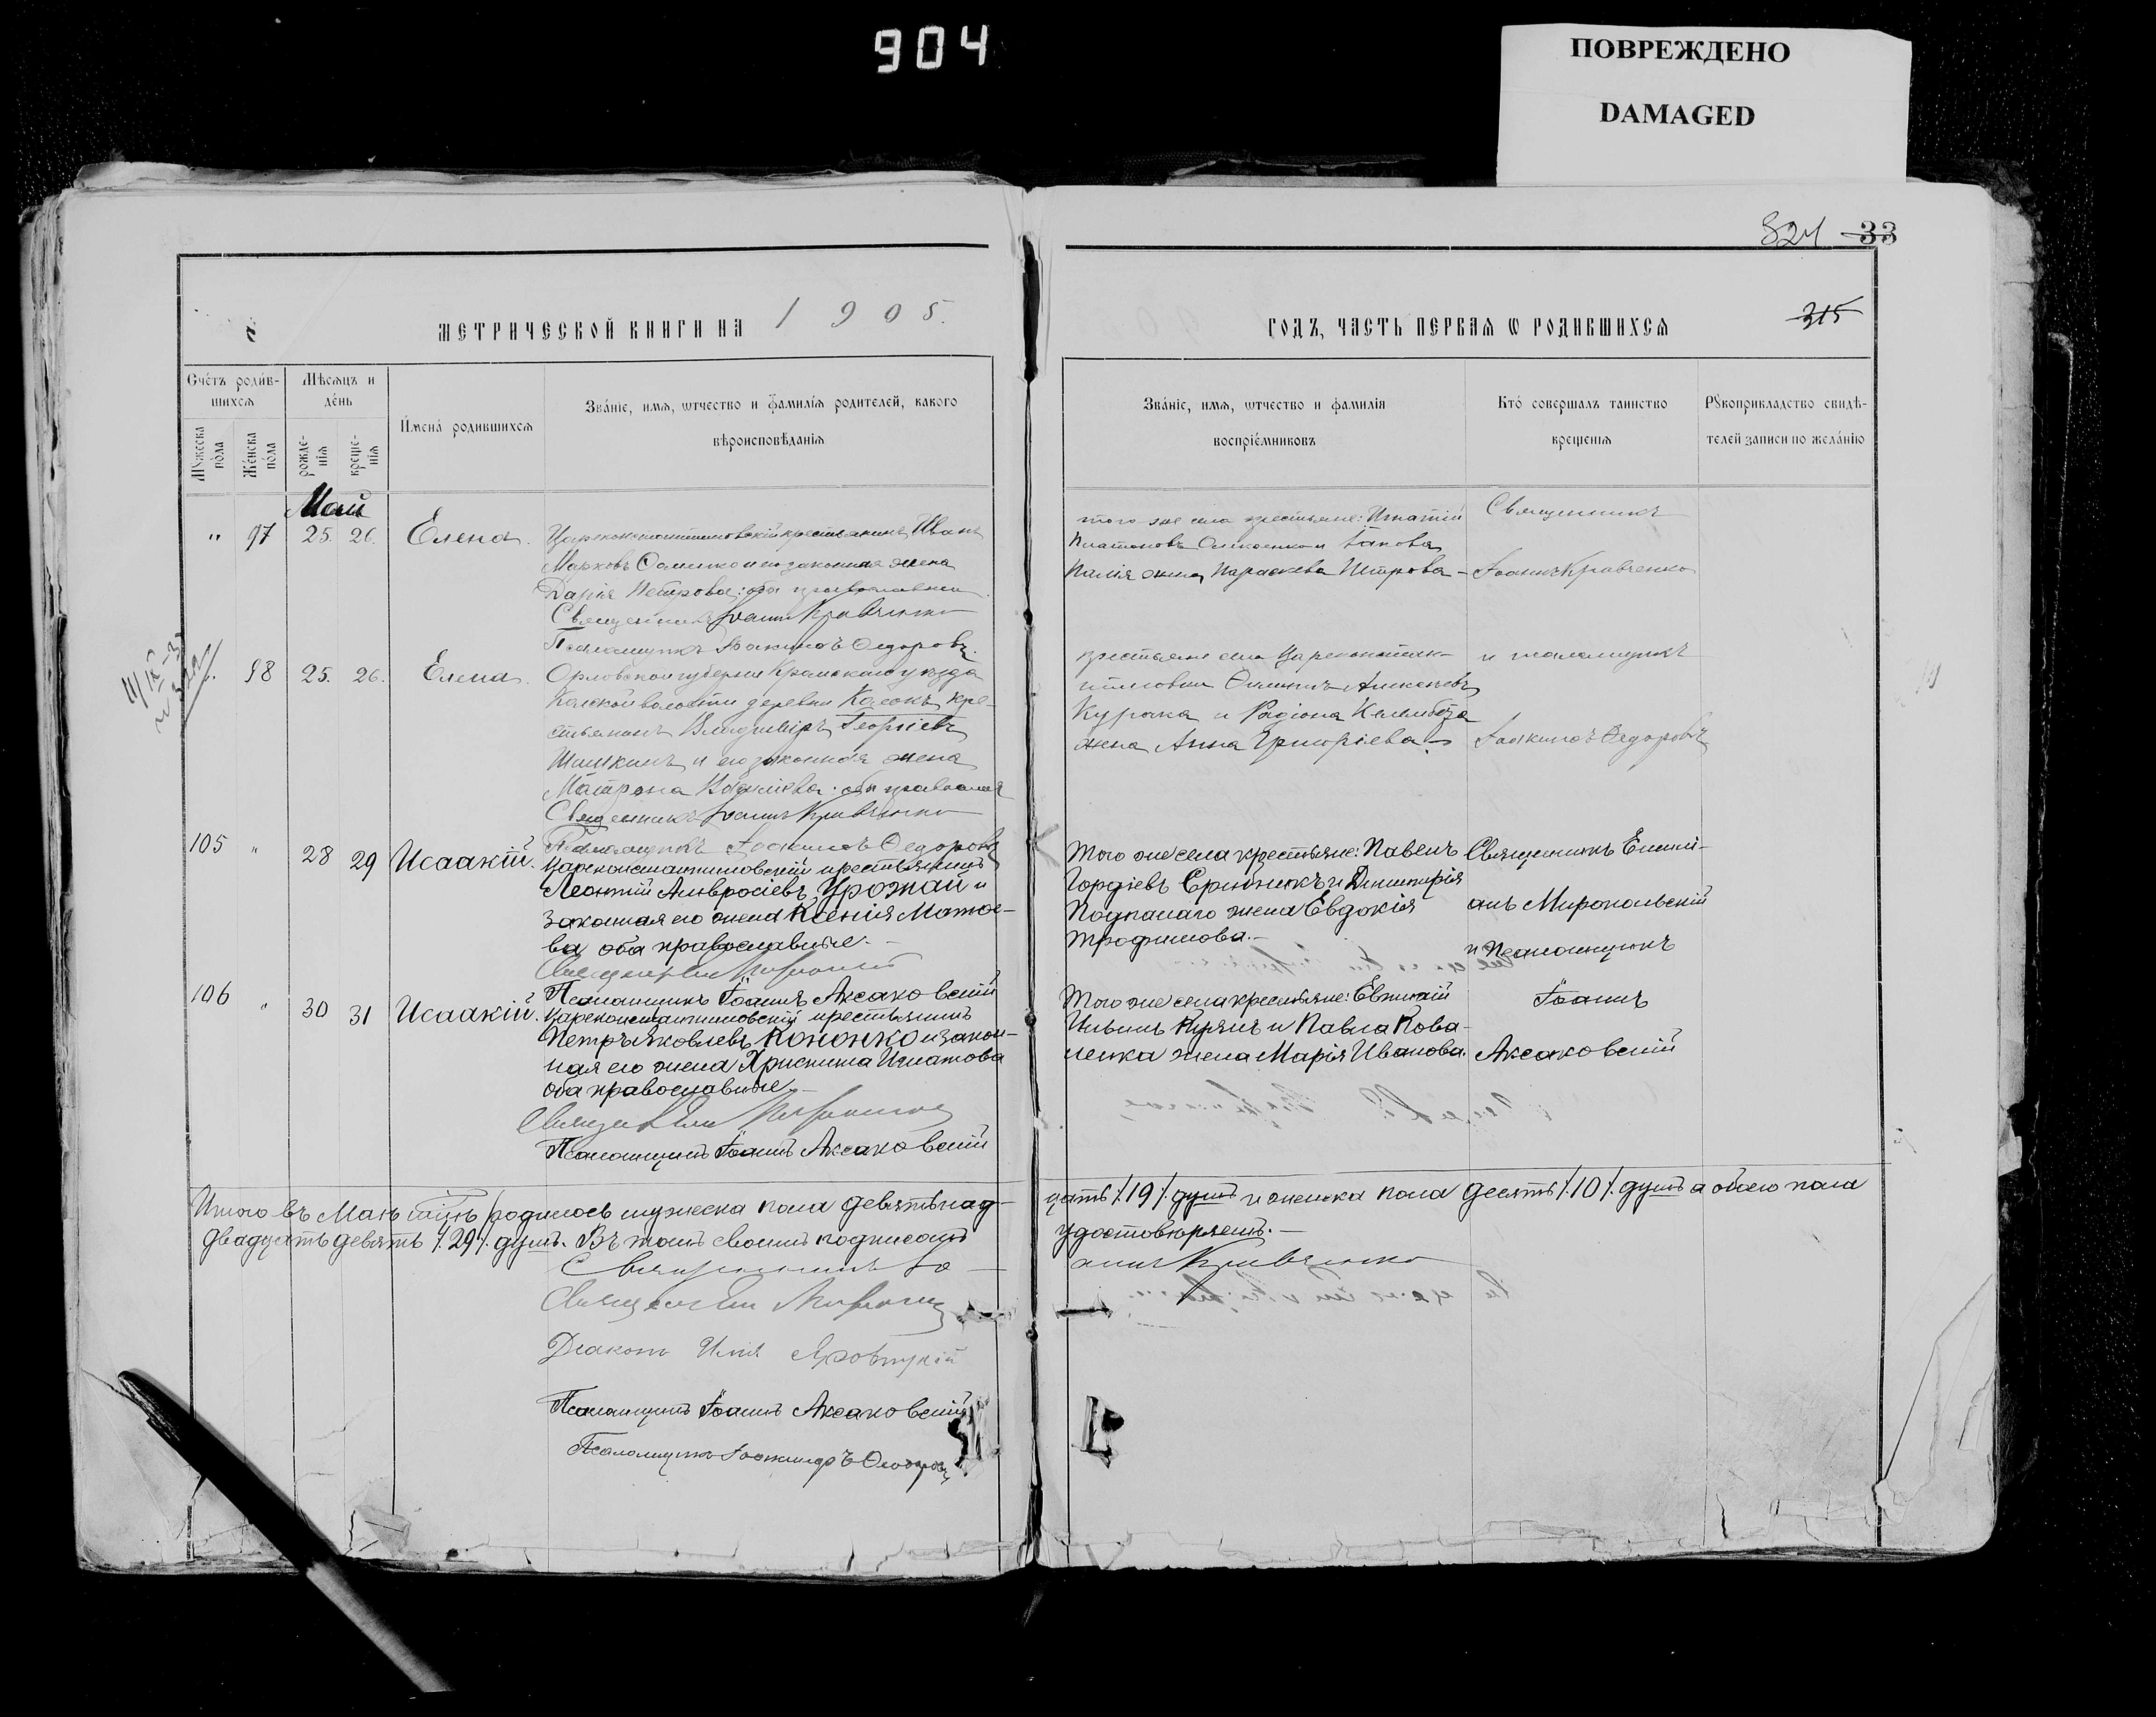 904
ПОВРЕЖДЕНО
DAMAGED
824 33
МЕТРИЧЕСКОЙ КНИГИ НА 1905.
ГОДЪ, ЧАСТЬ ПЕРВАЯ Ѡ РОДИВШИХСЯ
315
Счетъ родив-
шихся
Мужеска пола
Женска пола
Мѣсяцъ и
день
рожде-
нія
креще-
нія
Имена родившихся
Званіе, имя, ѡтчество и фамилія родителей, какого
вѣроисповѣданія
Званіе, имя, ѡтчество и фамилія
воспріемниковъ
Кто совершалъ таинство
крещенія
Рꙋкоприкладство свидѣ-
телей записи по желанію
Май
" 97 25. 26. Елена.
Цареконстантиновскій крестьянинъ Иванъ
Марковъ и его законная жена
Дарія Петрова: оба православные.
Священникъ Іоаннъ Кравченко
Псаломщикъ Іоакимъ Ѳедоровъ.
того же села крестьяне: Игнатій
Платоновъ и Іакова
Палія жена Параскева Петрова-
Священникъ
Іоаннъ Кравченко
98 25. 26. Елена.
Орловской губерніи уѣзда
волости деревни кре-
стьянинъ Владиміръ Георгіевъ
Шишкинъ и его законная жена
Матрона оба православн
Священникъ Іоаннъ Кравченко
Псаломщикъ Іоакимъ Ѳедоровъ
крестьяне села Цареконстан-
тиновки Алексѣевъ
Курака и Родіона
жена Анна Григоріева.-
и псаломщикъ
Іоакимъ Ѳедоровъ
105 " 28 29 Исаакій.
Цареконстантиновскій крестьянинъ
Леонтій Амвросіевъ Урожай и
законная его жена Ксенія Матѳе-
ва оба православные.-
Псаломщикъ Іоаннъ Аксаковскій
Того же села крестьяне: Павелъ
Гордіевъ и Димитрія
жена Евдокія
Трофимова.-
Священникъ Емилі-
анъ Миропольскій
и Псаломщикъ
Іоаннъ
Аксаковскій
106 " 30 31 Исаакій.
Цареконстантиновскій крестьянинъ
Петръ Яковлевъ Кононко и закон-
ная его жена Христина Игнатова
оба православные.-
Псаломщикъ Іоаннъ Аксаковскій
Того же села крестьяне: Евтихій
Ильинъ и Павла Кова-
ленка жена Марія Иванова.
Итого въ Маѣ мѣсяцѣ родилось мужеска пола девятьнад-
цать /.19/. душъ и женска пола десять /.10/. душъ а обоего пола
двадцать девять /.29/. душъ. Въ томъ своимъ подписомъ
удостовѣряемъ.-
Священникъ Іо-
аннъ Кравченко
Діаконъ Илія
Псаломщикъ Іоаннъ Аксаковскій
Псаломщикъ Іоакимъ Ѳедоровъ